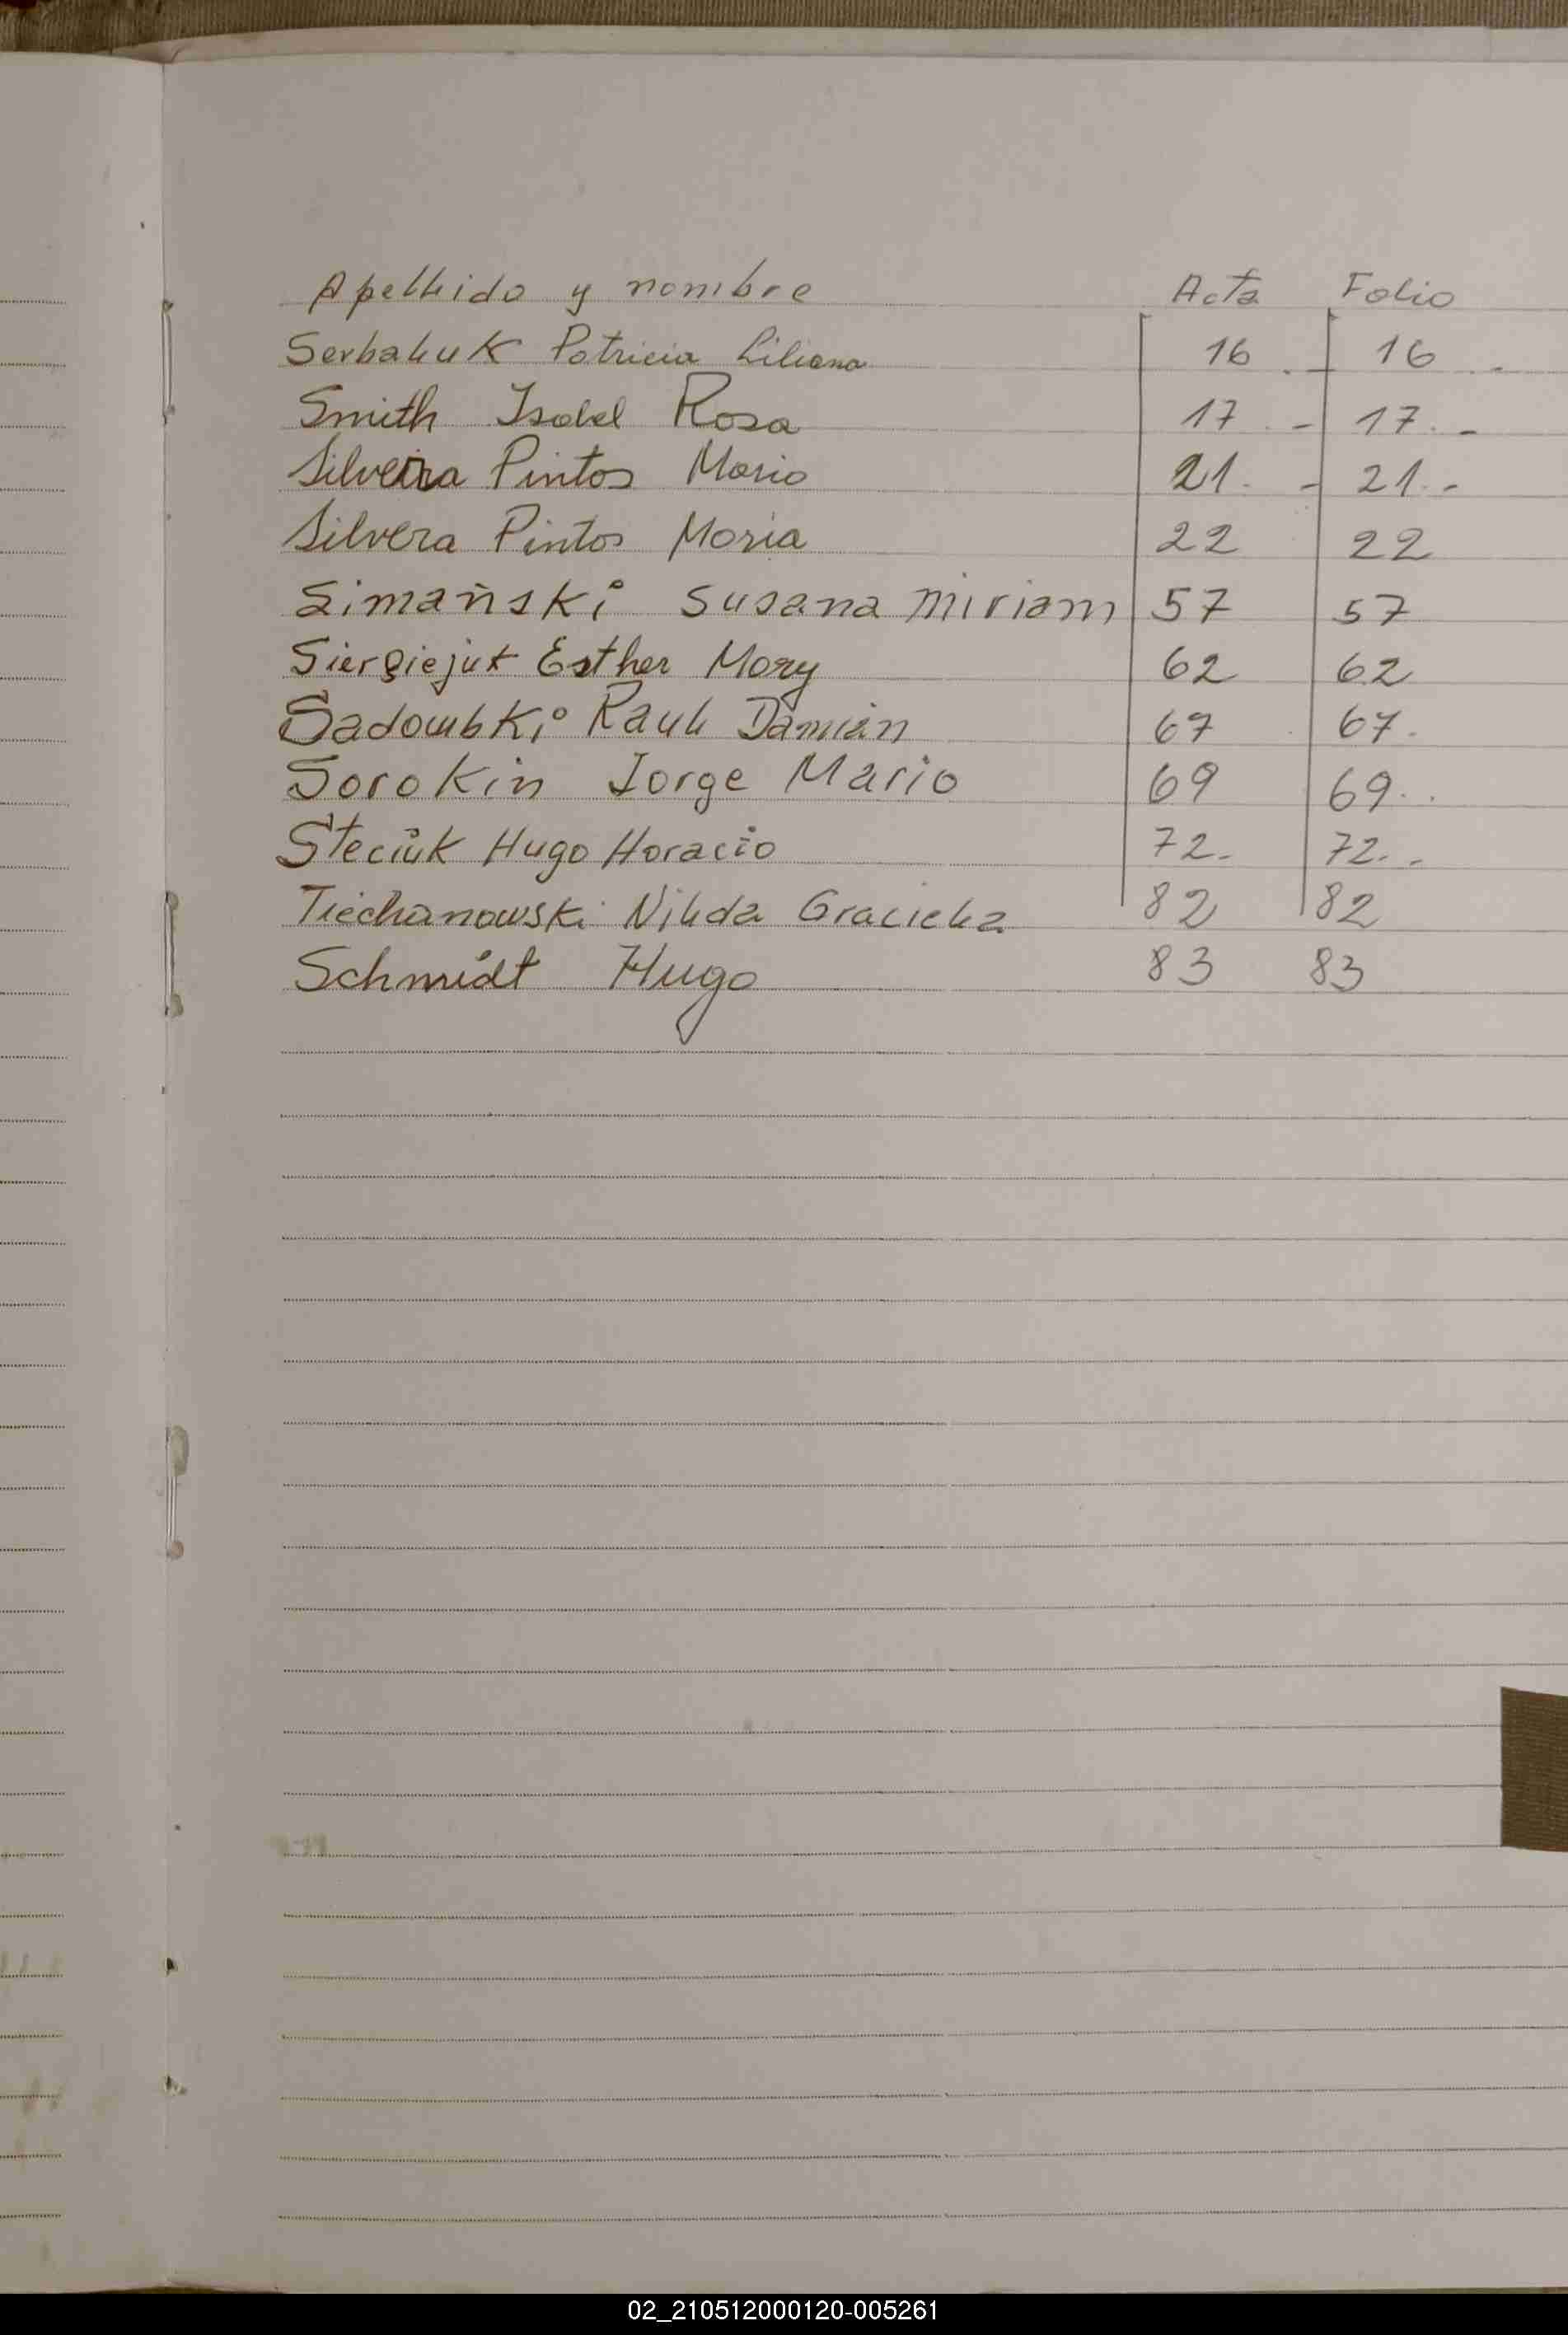 Apellido y nombre Acta Folio
Serbaluk Patricia Liliana 16 . - 16 . -
Smith Isabel Rosa 17 . - 17 . -
Silveira Pintos Mario 21 . - 21 . -
Silvera Pintos Maria 22 22
Simañski Susana Miriam 57 57
Siergiejuk Esther Mary 62 62
Sadowski Raul Damián 67 67 .
Sorokin Jorge Mario 69 69 . .
Steciuk Hugo Horacio 72 . 72 . -
Tiechanowski Nilda Graciela 82 82
Schmidt Hugo 83 83
02_210512000120-005261